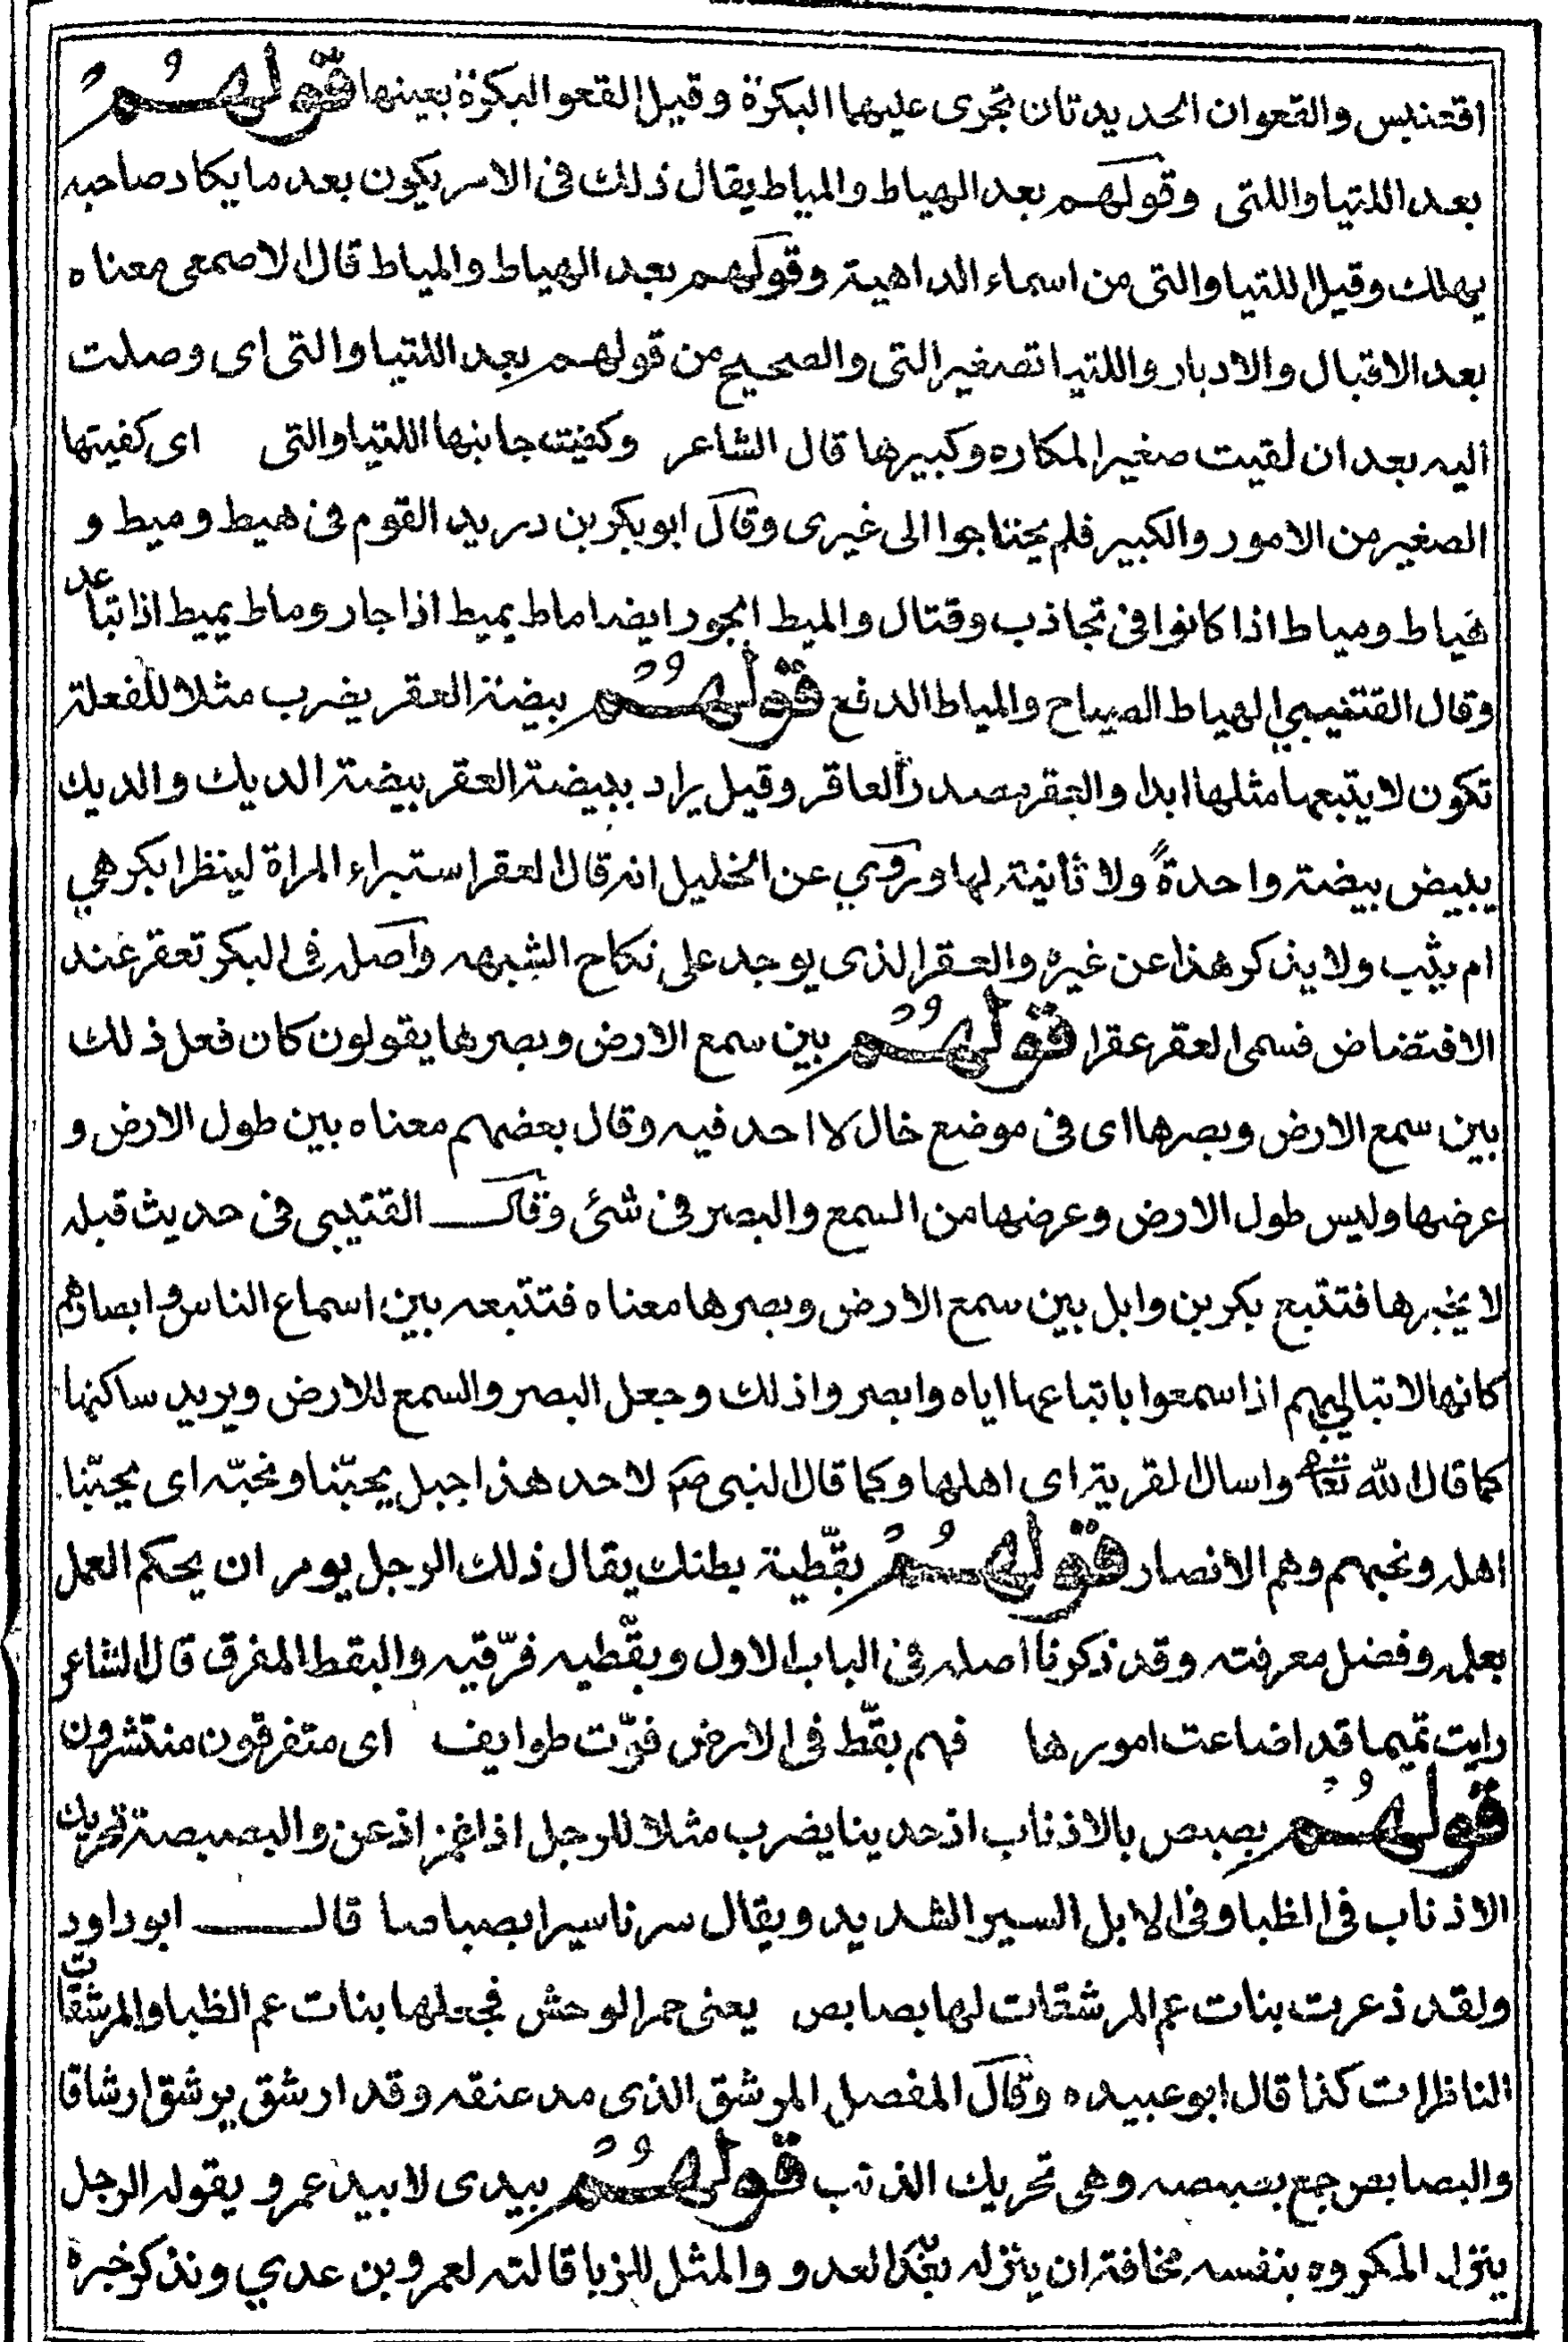 اقعنيس والقعوان الحديدتان تجرى عليهما البكرة وقيل القعو البكرة بعينها قولهم
بعد اللتيا واللتى وقولهم بعد الهياط والمياط يقال ذلك فى الامر يكون بعد ما يكاد صاحبه
يهلك وقيل اللتيا والتى من اسماء الداهية وقولهم بعد الهياط والمياط قال الاصمعى معناه
بعد الاقبال والادبار واللتيا تصغير التى والصحيح من قولهم بعد اللتيا والتى اى وصلت
اليه بعد ان لقيت صغير المكاره وكبيرها قال الشاعر وكفيت جانبها اللتيا والتى اى كفيتها
الصغير من الامور والكبير فلم يحتاجوا الى غيرى وقال ابو بكر بن دريد القوم فى هيط وميط و
هياط ومياط اذا كانوا فى تجاذب وقتال والميط الجور ايضا ماط يميط اذا جار وماط يميط اذا تباعد
وقال القتيبي الهياط الصياح والمياط الدفع قولهم بيضة العقر يضرب مثلا للفعلة
تكون لا يتبعها مثلها ابدا والعقر مصدر العاقر وقيل يراد ببيضة العقر بيضة الديك والديك
يبيض بيضة واحدةً ولا ثانية لها وروي عن الخليل انه قال العقر استبراء المراة لينظر ابكر هي
ام ثيب ولا يذكر هذا عن غيره والعقر الذى يوجد على نكاح الشبهه واصله فى البكر تعقر عند
الافتضاض فسمى العقر عقرا قولهم بين سمع الارض وبصرها يقولون كان فعل ذلك
بين سمع الارض وبصرها اى فى موضع خال لا احد فيه وقال بعضهم معناه بين طول الارض و
عرضها وليس طول الارض وعرضها من السمع والبصر فى شئ وقال القتيبى فى حديث قبله
لا يخبرها فتتبع بكر بن وابل بين سمع الارض وبصرها معناه فتتبعه بين اسماع الناس وابصارهم
كانها لا تباليهم اذا سمعوا باتباعها اياه وابصروا ذلك وجعل البصر والسمع للارض ويريد ساكنها
كما قال الله تعه واسال القرية اى اهلها وكما قال النبى صلم لاحد هذا جبل يحبّنا ونحبّه اى يحبّنا
اهله ونحبهم وهم الانصار قولهم بقّطية بطنك يقال ذلك الرجل يومر ان يحكم العمل
بعلمه وفضل معرفته وقد ذكرنا اصله فى الباب الاول وبقّطيه فرّقيه والبقط المفرق قال الشاعر
رايت تميما قد اضاعت امورها فهم بقّط فى الارض فرّت طوايف اى متفرقون منتشرون
قولهم بصبص بالاذناب اذ حدينا يضرب مثلا للرجل اذا غمز اذعن والبصبصة تحريك
الاذناب فى الظبا وفى الابل السير الشديد ويقال سرنا سيرا بصباصا قال ابو داود
ولقد ذعرت بنات عم المرشقات لها بصابص يعنى حمر الوحش فجعلها بنات عم الظبا والمرشقات
الناظرات كذا قال ابو عبيده وقال المفصل المرشق الذى مد عنقه وقد ارشق يرشق ارشاقا
والبصابص جمع بصبصه وهى تحريك الذنب قولهم بيدى لا بيد عمرو يقوله الرجل
ينزل المكروه بنفسه مخافة ان ينزله به العدو والمثل للزبا قالته لعمرو بن عدي ونذكر خبره